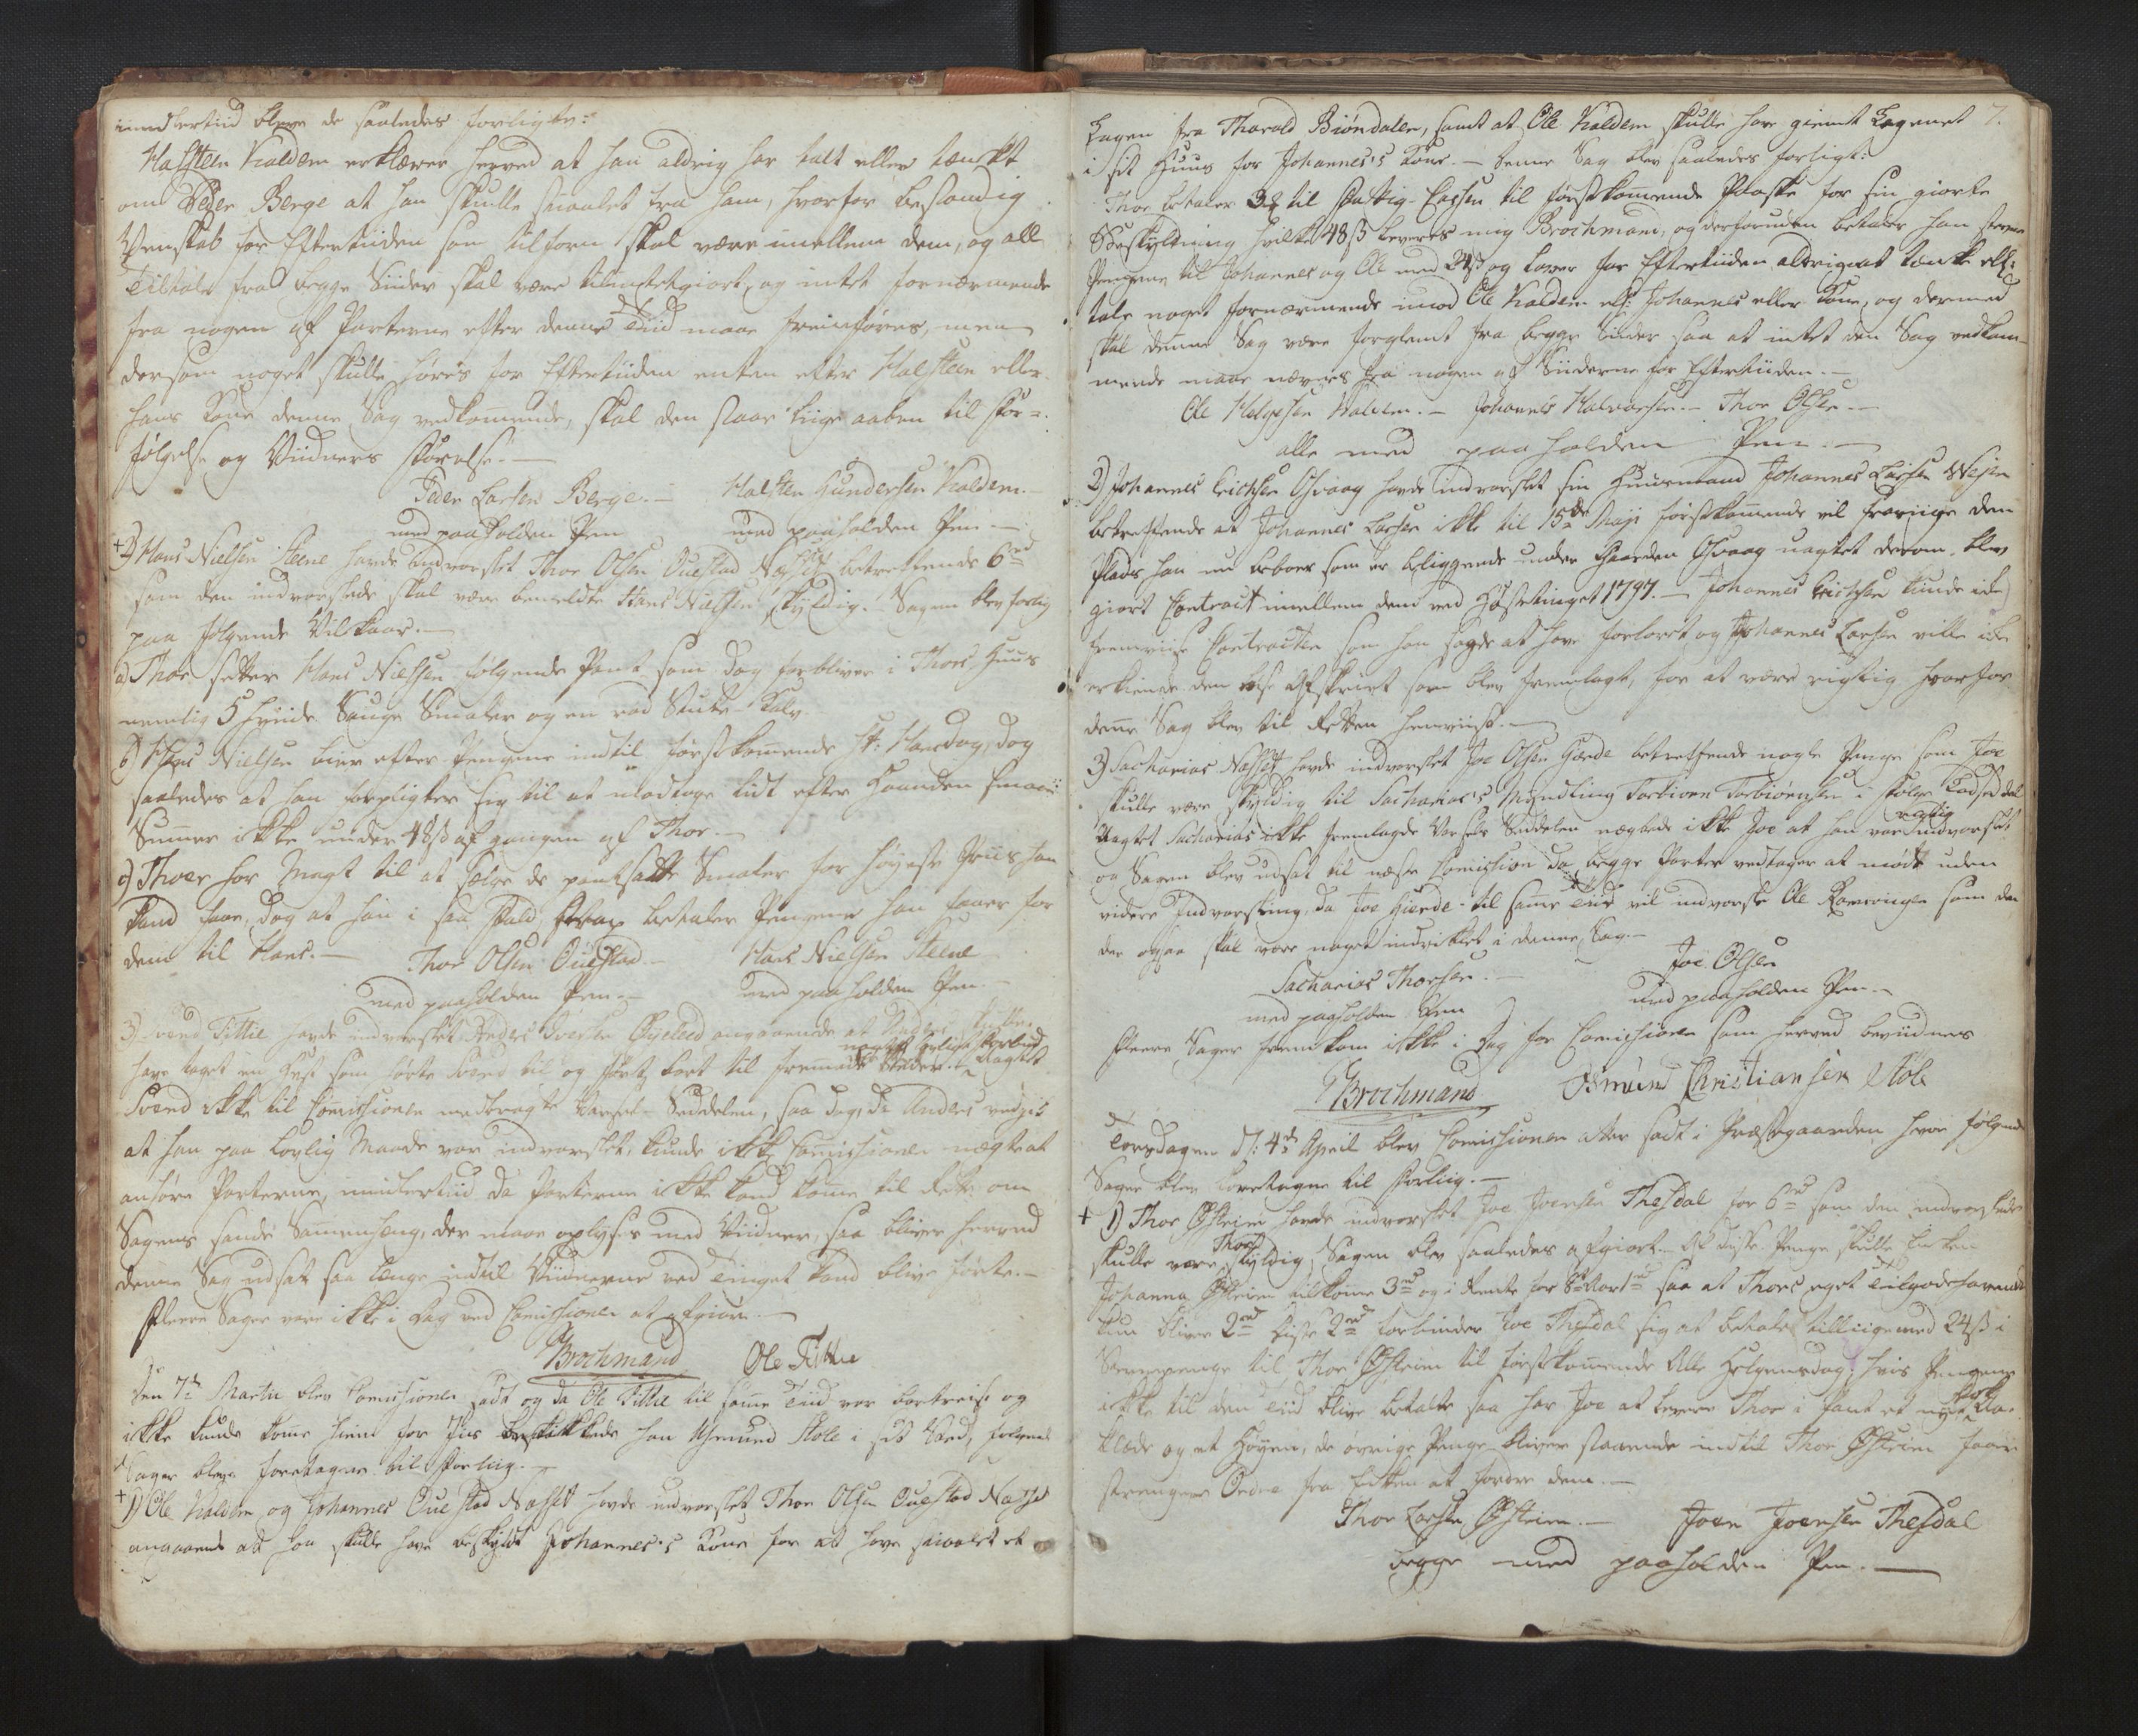 imidlertiid bleve de saaledes forligte:
Halsteen Kaldem erklærer herved at han aldrig har talt eller tænkt
om Peder Berge at han skulle staalet fra ham, hvorfor bestandig
Venskab for Eftertiiden som tilforn skal være imellem dem, og all
Tiltale fra begge Siider skal være tilintetgiort, og intet fornærmende
fra nogen af Parterne efter denne Tiid maae fremføres, men
dersom noget skulle høres for Eftertiiden enten efter Halsteen eller
hans Kone denne Sag vedkommende, skal den staae liige aaben til
følgelse og Viidners førelse.
Peder Larsen Berge. — Halsten Gundersen Kaldem.
med paaholden Pen med paaholden Pen —
+ 2) Hans Nielsen Steene havde indvarslet Thor Olsen Questad Næsset betreffende 6 rd
som den indvarslede skal være bemeldte Hans Nielsen skyldig. Sagen blev forligt
paa følgende Vilkaar. —
a) Thor setter Hans Nielsen følgende Pant som dog forbliver i Thors Huus
nemlig 5 hviide Sauge Smaler og en rød Stute-Kalv.
b) Hans Nielsen bier efter Pengene indtil førstkommende St: Hansdag, dog
saaledes at han forpligter sig til at modtage lidt efter Haanden smaae
Summer ikke under 48 ß af gangen af Thor. —
c) Thoer har Magt til at sælge de pantsatte Smaler for høyeste Priis han
kand faae, dog at han i saa fald strax betaler Pengene han faaer for
dem til Hans. — Thor Olsen Quistad — Hans Nielsen Steene
med paaholden Pen. — med paaholden Pen. —
3) Svend Tittie havde indvarslet Anders Iversen Øyeleed angaaende at Anders skulle
have taget en Hest som hørte Svend til og ført bort til fremmede Steder. uagtet Uagtet
Svend ikke til Comissionen medbragte Varsel-Seddelen, saa dog, da Anders vedgik
at han paa lovlig Maade var indvarslet, kunde ikke Comissionen negte at
anhøre Parterne, imidlertiid da Parterne ikke kand komme til Rette om
Sagens sande Sammenheng, der maae oplyses med Viidner, saa bliver herved
denne Sag udsat saa lenge indtil Viidnerne ved Tinget kand blive førte. —
Fleere Sager vare ikke i Dag ved Comissionen at afgiøre. —
Brochmand Ole Tittie
Den 7de Martii blev Comissionen sadt og da Ole Tittie til samme Tiid var bortreist og
ikke kunde komme hiem for Iis beskikkede han Asmund Støle i sit Sted, følgende
Sager bleve foretagne til Forliig. —
+ 1) Ole Kaldem og Johannes Questad Næsset havde indvarslet Thor Olsen Questad Næsset
angaaende at han skulle have beskyldt Johannes's Kone for at have staalet et
7.
Lagen fra Tharald Biøndalen, samt at Ole Kaldem skulle have giemt Lagenet
i sit Huus for Johannes's Kone. — denne Sag blev saaledes forligt:
Thor betaler 3 til Fattig-Cassen til førstkommende Paaske for sin giorte
Beskyldning hvilke 48 ß leveres mig Brochmann, og derforuden betaler han
Pengene til Johannes og Ole med 24 ß og lover for Eftertiiden aldrig at tænke ell:
tale noget fornærmende imod Ole Kaldem ell: Johannes eller Kone, og dermed
skal denne Sag være forglemt fra begge Siider saa at intet den Sag vedkom-
mende maae nævnes fra nogen af Siiderne for Eftertiiden. —
Ole Helgesen Kaldem. — Johannes Halvorsen. — Thor Olsen. —
alle med paaholden Pen. —
2) Johannes Erichsen Osvaag havde indvarslet sin Huusmand Johannes Larsen
betreffende at Johannes Larsen ikke til 15de Maji førstkommende vil fravige den
Plads han nu beboer som er beliggende under Gaarden Osvaag uagtet derom blev
giort Contract imellem dem ved Høstetinget 1797. — Johannes Erichsen kunde ikke
fremviise Contracten som han sagde at have forloret, og Johannes Larsen ville ikke
erkiende den Afskrivt som blev fremlagt, for at være rigtig hvorfor
denne Sag blev til Retten henviist. —
3) Sacharias Næsset havde indvarslet Joe Olsen Gierde betreffende nogle Penge som Joe
skulle være skyldig til Sacharias's Myndling Torbiørn Torbiørnsen i følge
Uagtet Sacharias ikke fremlagde Varsels Seddelen negtede ikke Joe at han var lovlig indvarslet
og Sagen blev udsat til næste Comission da begge Parter vedtager at møde uden
videre Indvarsling, da Joe Gierde til samme Tiid vil indvarsle Ole som den
der ogsaa skal være noget indviklet i denne Sag. —
Sacharias Thorsen. — Joe Olsen
med paaholden Pen med paaholden Pen —
Fleere Sager fremkom ikke i Dag for Comissionen som herved bevidnes
Brochmand Osmund Christiansen Støle
Torsdagen d: 4de April blev Comissionen atter sadt i Præstegaarden hvor følgende
Sager blev foretagne til Forliig. —
+ 1) Thor Østreim havde indvarslet Joe Joensen Thesdal for 6 rd som den indvarslede
skulle være Thor skyldig, Sagen blev saaledes afgiort. Af disse Penge skulle Enken
Johanna Østreim tilkomme 3 rd og i Rente for saa at Thors eget Tilgodehavende
kun bliver 2 rd disse 2 rd forbinder Joe Thesdal sig at betale tilliigemed 24 ß i
til Thor Østreim til førstkommende Alle Helgensdag; hvis Pengene
ikke til den Tiid blive betalte saa har Joe at levere Thor i Pant et nyt
klæde og et Høyen, de øvrige Penge bliver staaende indtil Thor Østreim faar
strengere Ordre fra Enken at fordre dem. —
Thor Larsen Østreim. — Joen Joensen Thesdal
begge med paaholden Pen. —